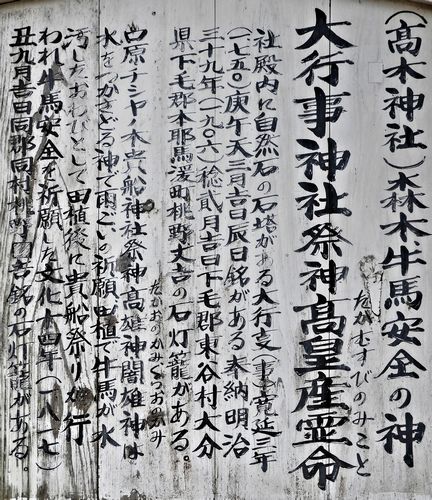 (髙木神社)森木、牛馬安全の神
大行事神社祭神髙皇産霊命
たかむすびのみこと
社殿内に自然石の石塔がある大行支(事)寛延三年
(一七五〇)庚午天三月吉日辰日銘がある奉納明治
三十九年(一九〇六)稔貮月吉日下毛郡東谷村大分
県下毛郡本耶馬渓町桃野丈吉の石灯籠がある。
古原ナシヤノ木貴船神社祭神髙龗神闇龗神は
たかおのかみくらおのかみ
水をつかさどる神で雨ごいの祈願、田植で牛馬が水
河したおわびとして田植後に貴船祭りが行
われ牛馬安全を祈願した文化十四年(一八一七)
丑九月吉日同郡同村桃野 吉銘の石灯籠がある。